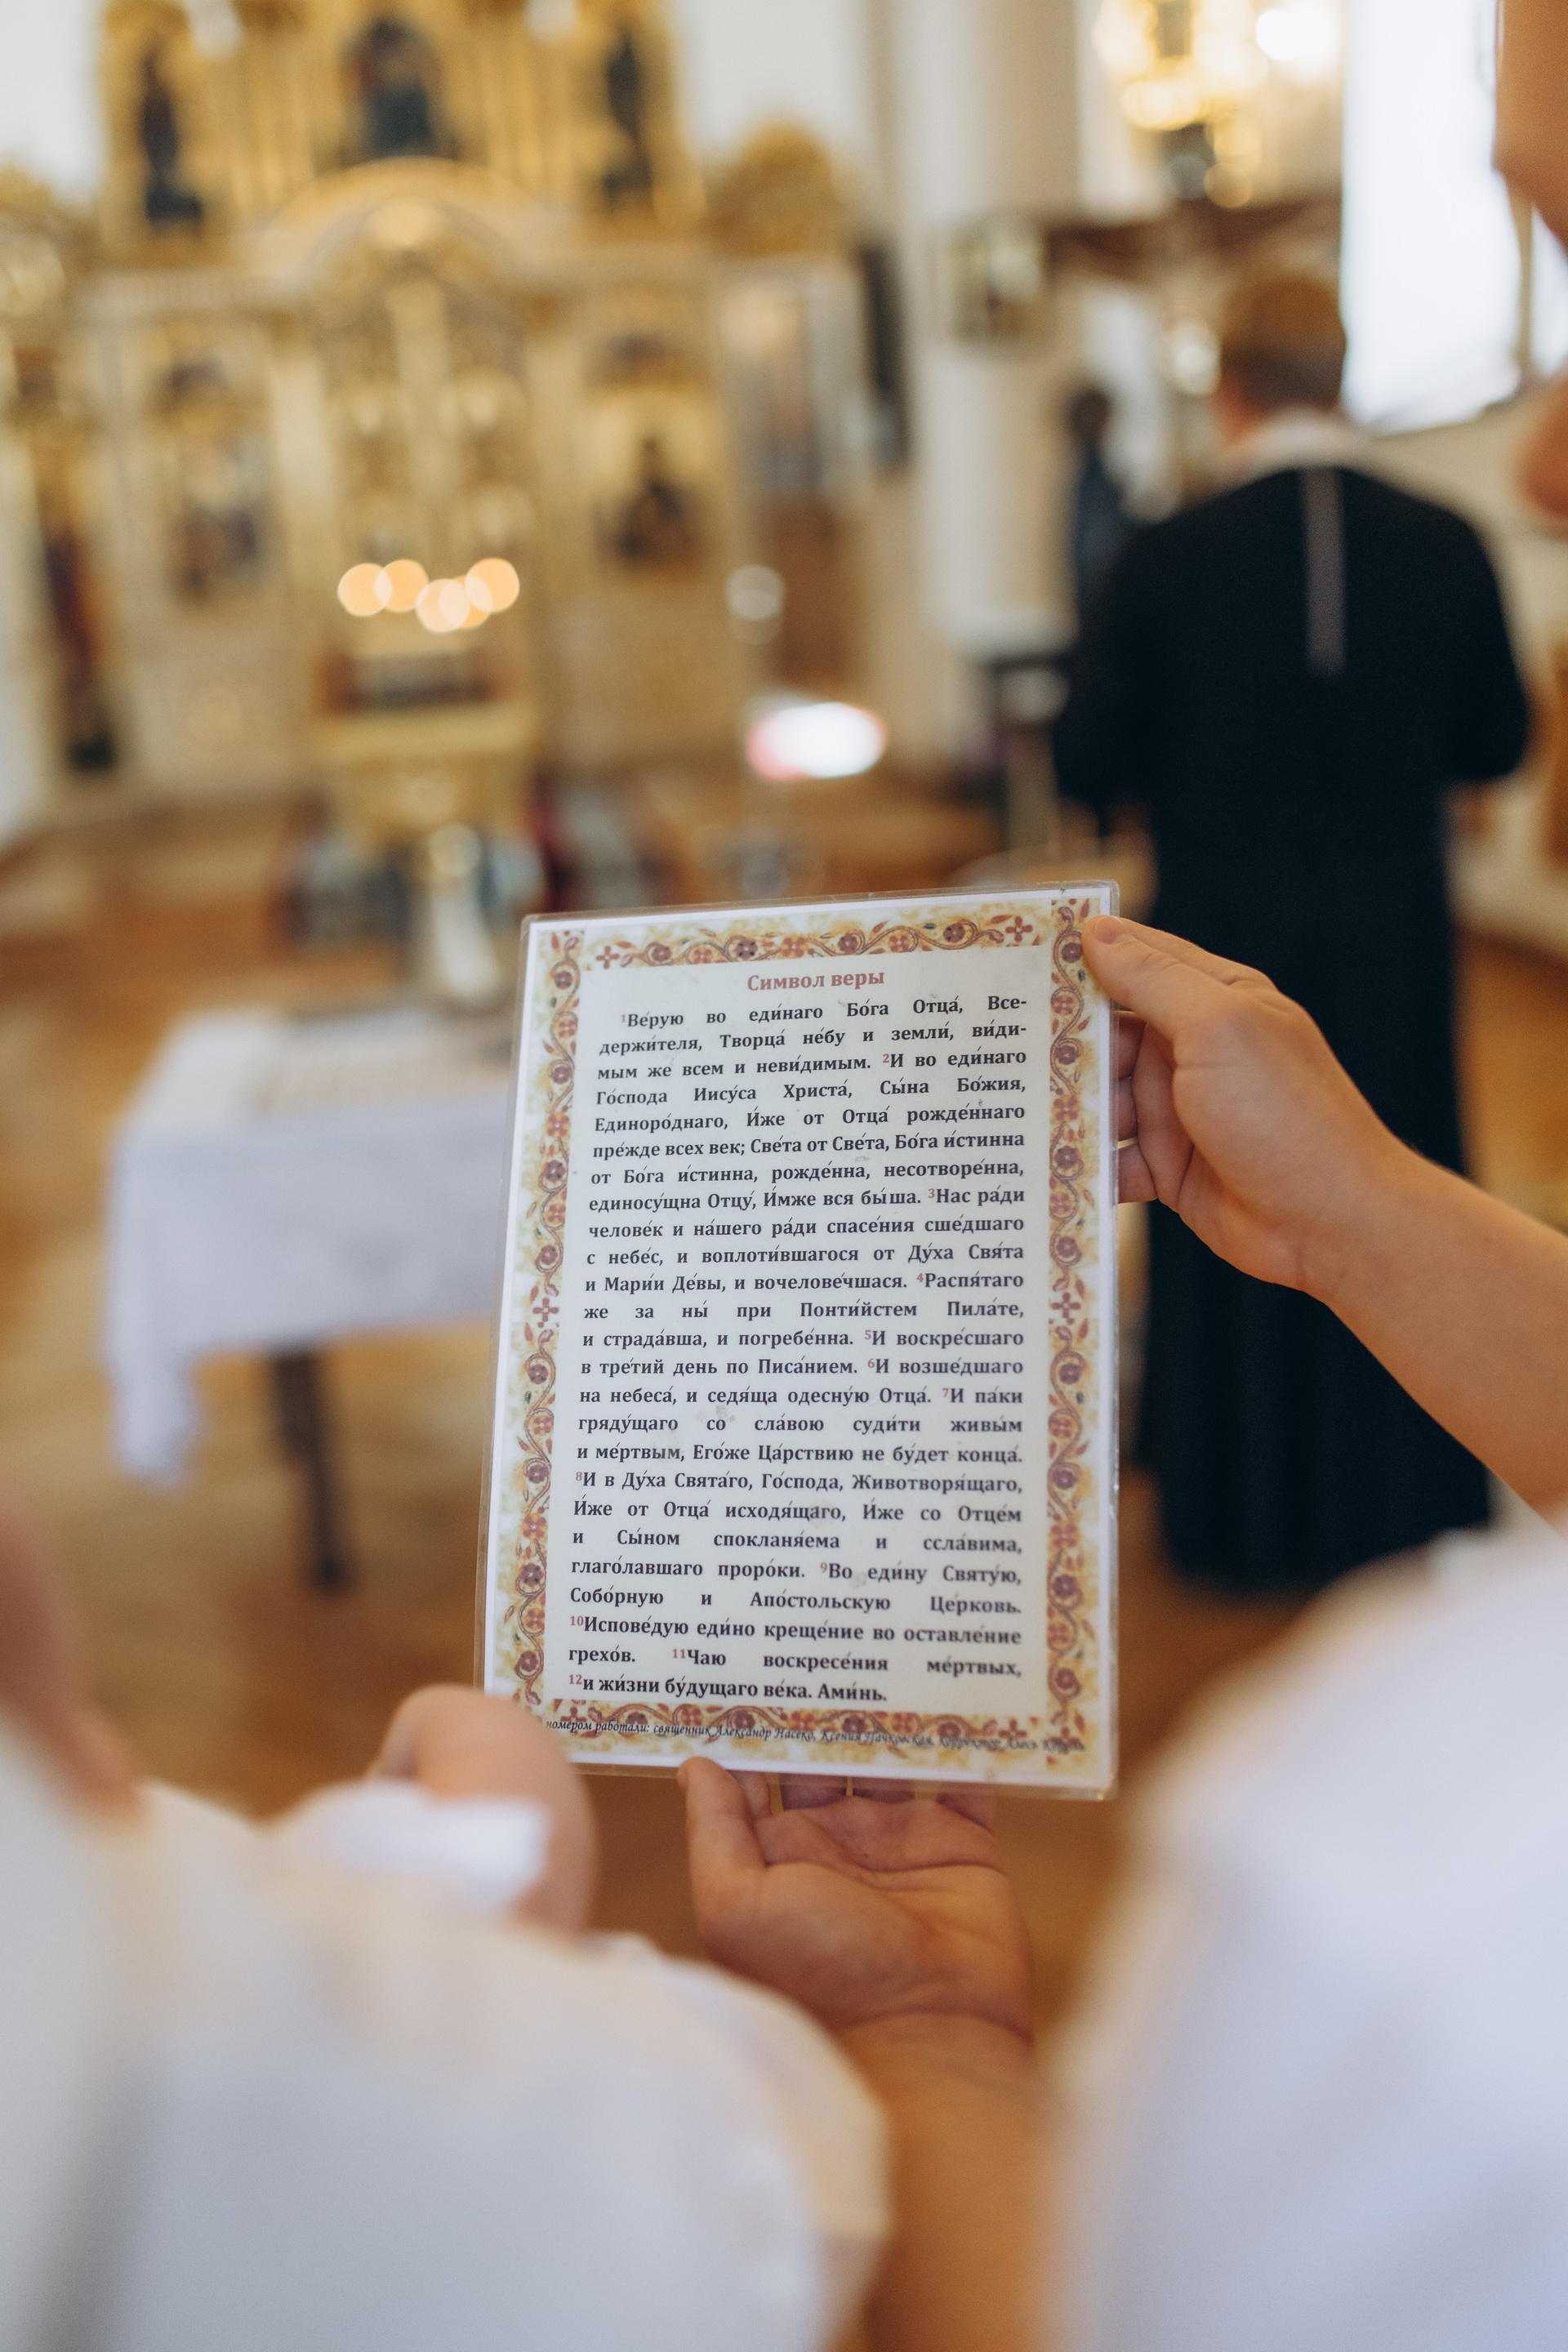 Символ веры
¹Ве́рую во еди́наго Бо́га Отца́, Все-
держи́теля, Творца́ не́бу и земли́, ви́ди-
мым же всем и неви́димым. ²И во еди́наго
Го́спода Иису́са Христа́, Сы́на Бо́жия,
Единоро́днаго, И́же от Отца́ рожде́ннаго
пре́жде всех век; Све́та от Све́та, Бо́га и́стинна
от Бо́га и́стинна, рожде́нна, несотворе́нна,
единосу́щна Отцу́, И́мже вся бы́ша. ³Нас ра́ди
челове́к и на́шего ра́ди спасе́ния сше́дшаго
с небе́с, и воплоти́вшагося от Ду́ха Свя́та
и Мари́и Де́вы, и вочелове́чшася. ⁴Распя́таго
же за ны́ при Понти́йстем Пила́те,
и страда́вша, и погребе́нна. ⁵И воскре́сшаго
в тре́тий день по Писа́нием. ⁶И возше́дшаго
на небеса́, и седя́ща одесну́ю Отца́. ⁷И па́ки
гряду́щаго со сла́вою суди́ти живы́м
и ме́ртвым, Его́же Ца́рствию не бу́дет конца́.
⁸И в Ду́ха Свята́го, Го́спода, Животворя́щаго,
И́же от Отца́ исходя́щаго, И́же со Отце́м
и Сы́ном спокланя́ема и ссла́вима,
глаго́лавшаго проро́ки. ⁹Во еди́ну Святу́ю,
Собо́рную и Апо́стольскую Це́рковь.
¹⁰Испове́дую еди́но креще́ние во оставле́ние
грехо́в. ¹¹Чаю воскресе́ния ме́ртвых,
¹²и жи́зни бу́дущаго ве́ка. Ами́нь.
номером работали: священник Александр Насеко, Ксения Пачковская, корректор Олеся